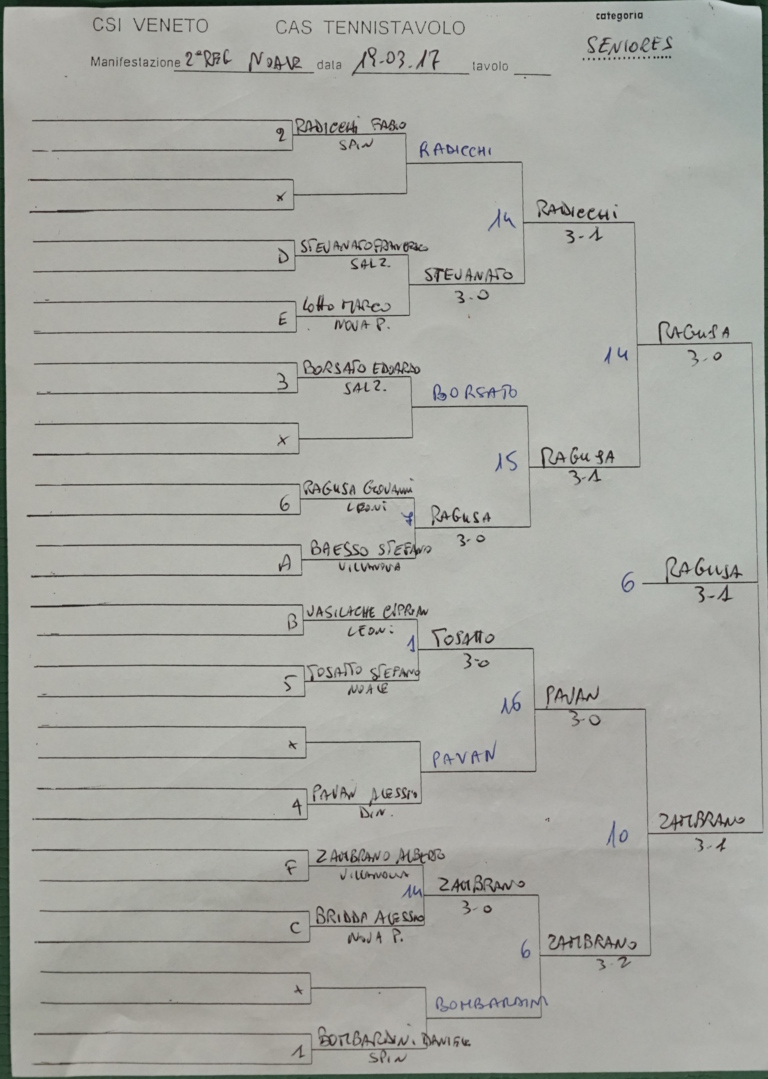 CSI VENETO CAS TENNISTAVOLO categoria
SENIORES
Manifestazione 2ª REG NOALE data 19-03.17 tavolo
2 RADICCHI FABIO
SPIN
RADICCHI
X
14 RADICCHI
3-1
D STEVANATO FRANCESCO
SALZ.
STEVANATO
3.0
E LOTTO MARCO
NOVA P.
14 RAGUSA
3-0
3 BORSATO EDOARDO
SALZ.
BORSATO
X
15 RAGUSA
3-1
6 RAGUSA GIOVANNI
LEONI
7 RAGUSA
3-0
A BAESSO STEFANO
VILLANOVA
6 RAGUSA
3-1
B VASILACHE CIPRIAN
LEONI
1 TOSATTO
3-0
5 TOSATTO STEFANO
NOALE
16 PAVAN
3-0
X
PAVAN
4 PAVAN ALESSIO
DIN.
10 ZAMBRANO
3-1
F ZAMBRANO ALBERTO
VILLANOVA
14 ZAMBRANO
3-0
C BRIDDA ALESSIO
NOVA P.
6 ZAMBRANO
3-2
X
BOMBARDINI
1 BOMBARDINI DANIELE
SPIN